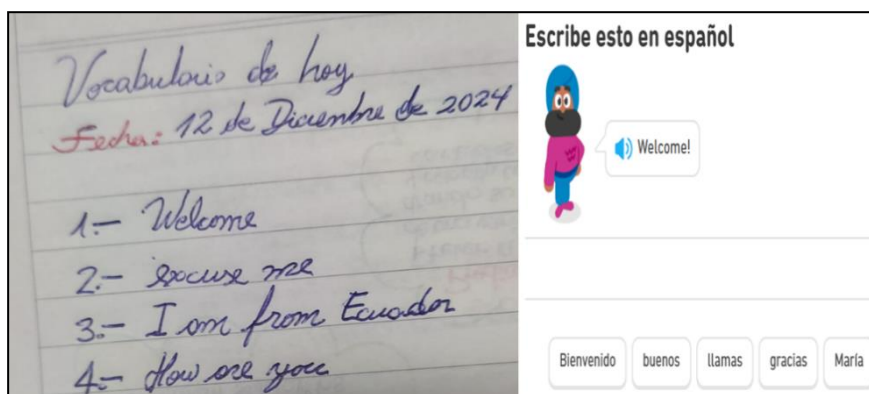 Vocabulario de hoy
Fecha: 12 de Diciembre de 2024
1.- Welcome
2.- excuse me
3.- I am from Ecuador
4.- How are you
Escribe esto en español
Welcome!
Bienvenido buenos llamas gracias María